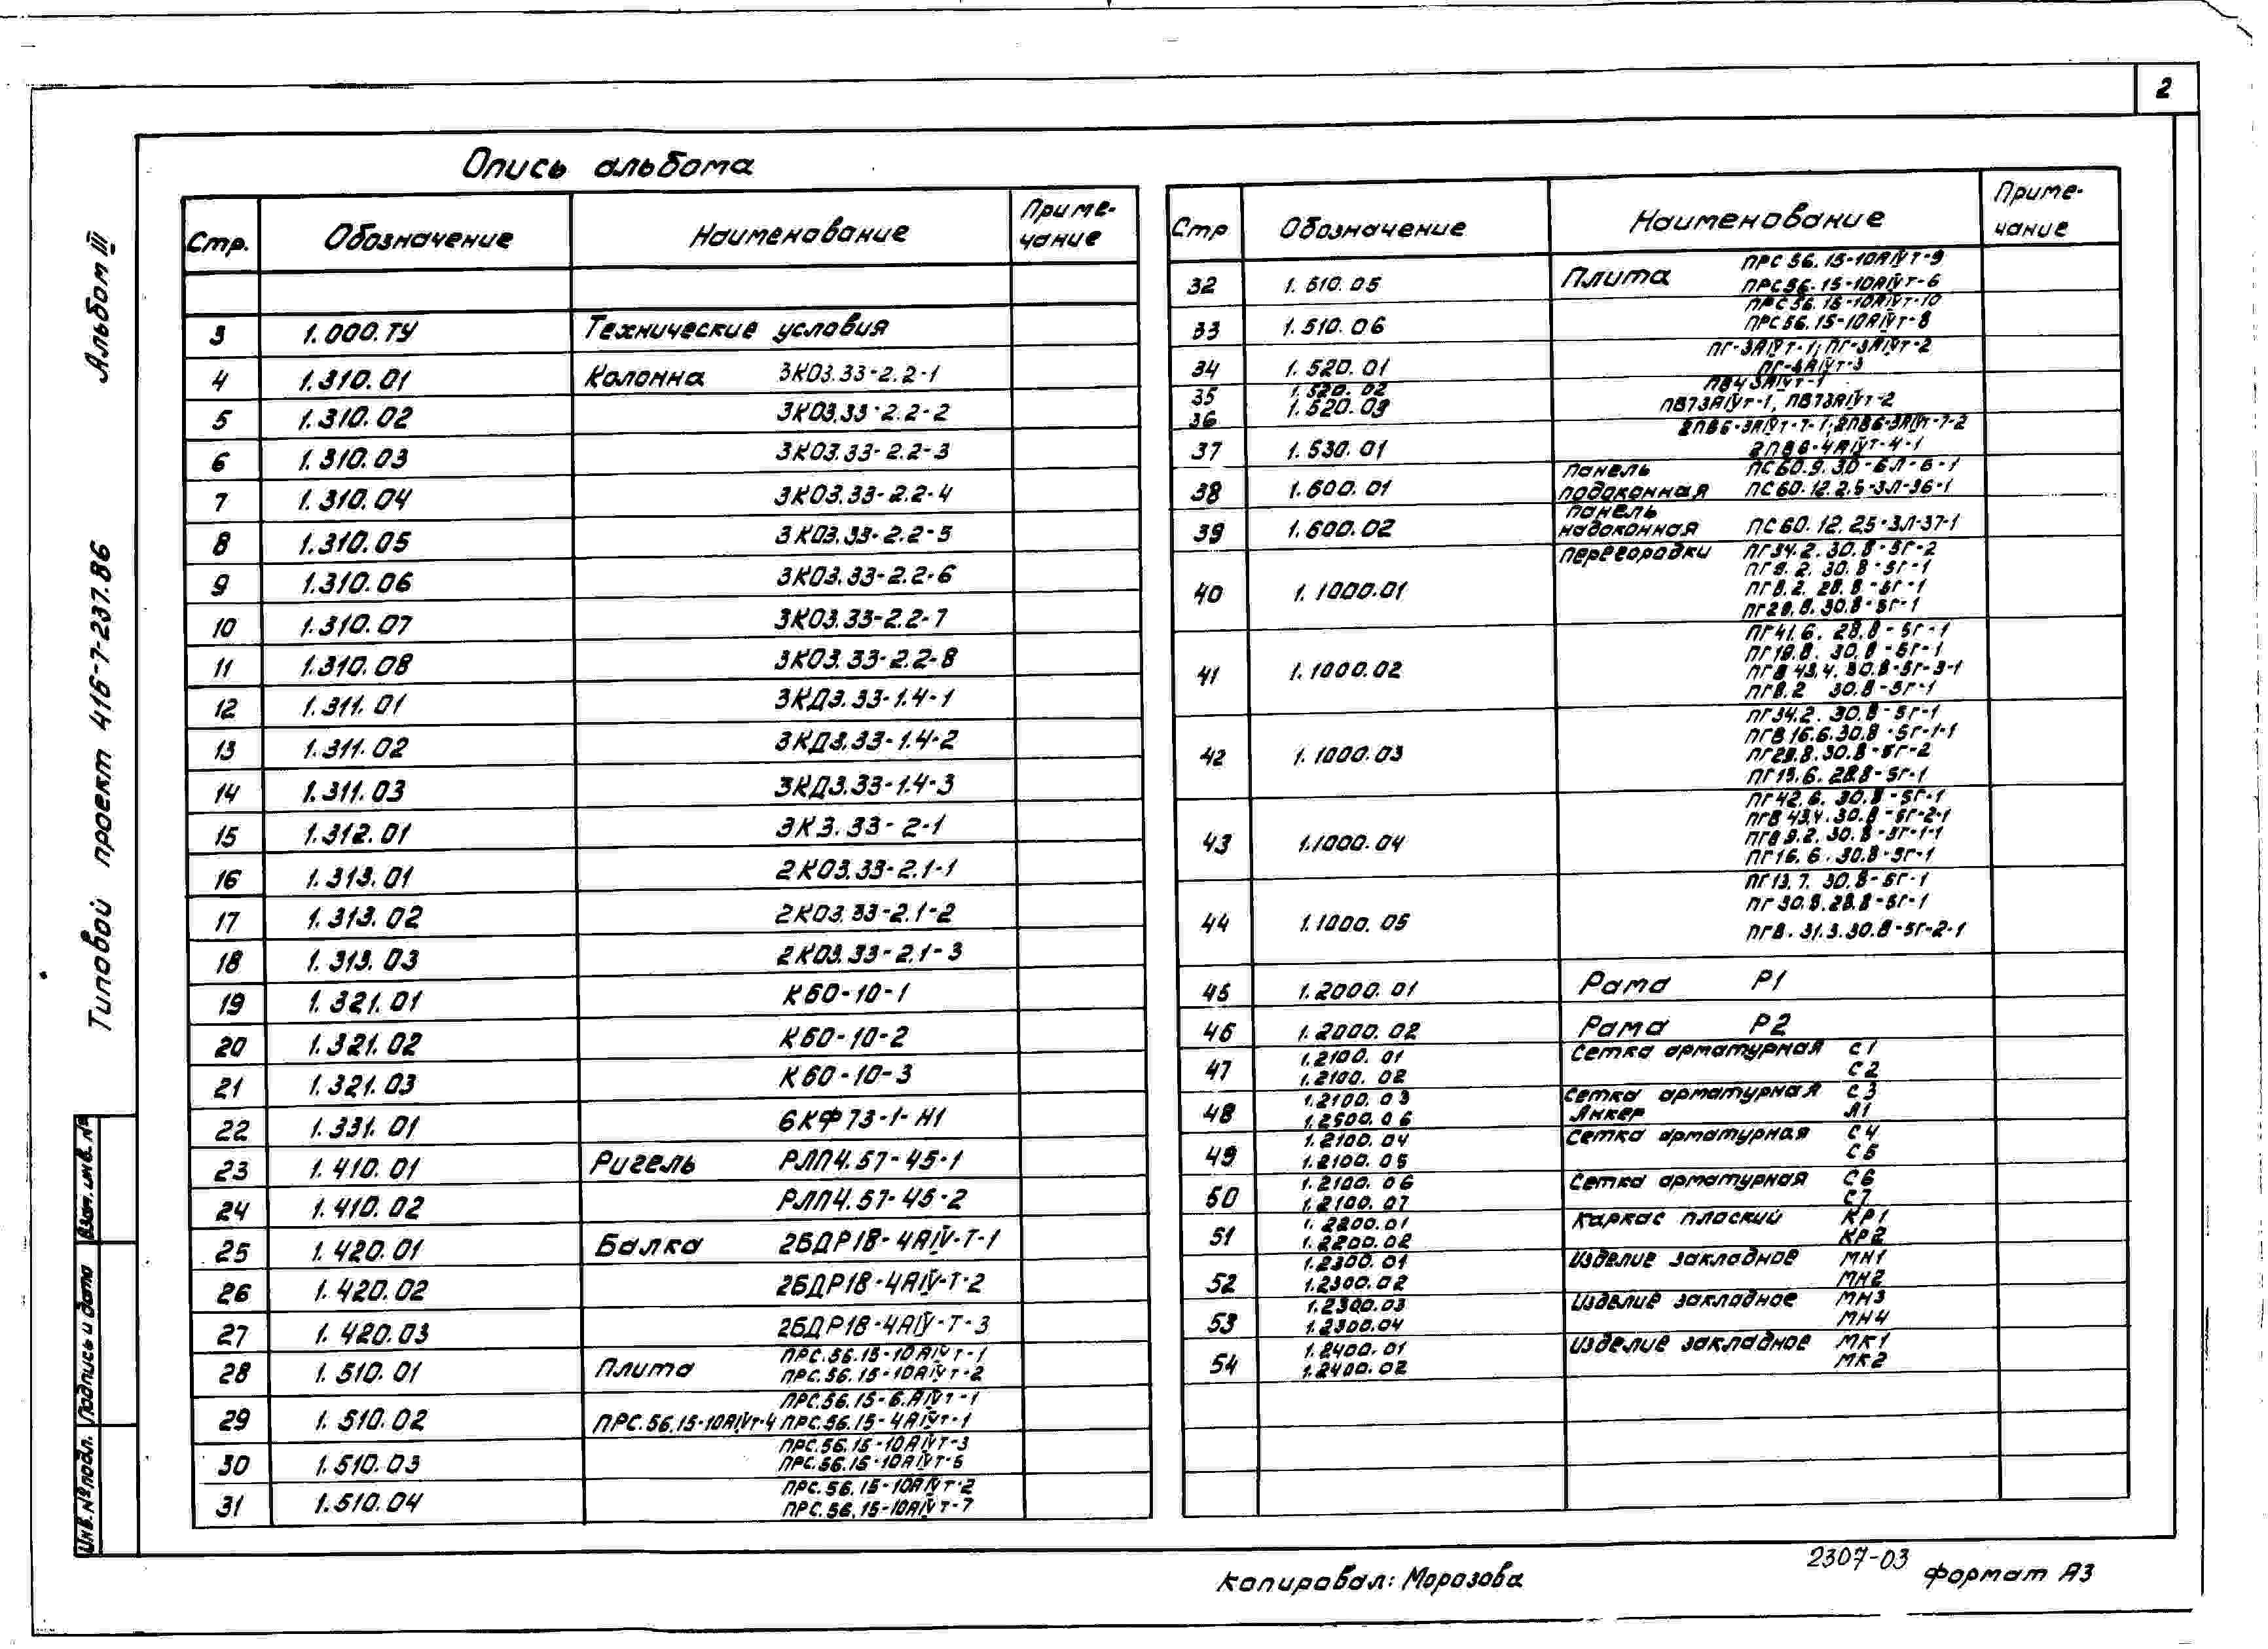 2
Опись альбома
Альбом III
Типовой проект 416-7-237.86
Стр. Обозначение Наименование Приме-
чание
3 1.000.ТУ Технические условия
4 1.310.01 Колонна 3КО3.33-2.2-1
5 1.310.02 3КО3.33-2.2-2
6 1.310.03 3КО3.33-2.2-3
7 1.310.04 3КО3.33-2.2-4
8 1.310.05 3КО3.33-2.2-5
9 1.310.06 3КО3.33-2.2-6
10 1.310.07 3КО3.33-2.2-7
11 1.310.08 3КО3.33-2.2-8
12 1.311.01 3КД3.33-1.4-1
13 1.311.02 3КД3.33-1.4-2
14 1.311.03 3КД3.33-1.4-3
15 1.312.01 3К3.33-2-1
16 1.313.01 2КО3.33-2.1-1
17 1.313.02 2КО3.33-2.1-2
18 1.313.03 2КО3.33-2.1-3
19 1.321.01 К60-10-1
20 1.321.02 К60-10-2
21 1.321.03 К60-10-3
22 1.331.01 6КФ73-1-Н1
23 1.410.01 Ригель РЛП4.57-45-1
24 1.410.02 РЛП4.57-45-2
25 1.420.01 Балка 2БДР18-4АIV-Т-1
26 1.420.02 2БДР18-4АIV-Т-2
27 1.420.03 2БДР18-4АIV-Т-3
28 1.510.01 Плита ПРС.56.15-10АIVТ-1
ПРС.56.15-10АIVТ-2
29 1.510.02 ПРС.56.15-6.АIVТ-1
ПРС.56.15-10АIVТ-4 ПРС.56.15-4АIVТ-1
30 1.510.03 ПРС.56.15-10АIVТ-3
ПРС.56.15-10АIVТ-5
31 1.510.04 ПРС.56.15-10АIVТ-2
ПРС.56.15-10АIVТ-7
Стр Обозначение Наименование Приме-
чание
32 1.510.05 Плита ПРС 56.15-10АIVТ-9
ПРС56.15-10АIVТ-6
33 1.510.06 ПРС56.15-10АIVТ-10
ПРС56.15-10АIVТ-8
34 1.520.01 ПГ-3АIVТ-1; ПГ-3АIVТ-2
ПГ-4АIVТ-3
35 1.520.02 ПВ43АIVТ-1
36 1.520.03 ПВ73АIVТ-1, ПВ73АIVТ-2
37 1.530.01 2ПВ6-3АIVТ-7-1; 2ПВ6-3АIVТ-7-2
2ПВ6-4АIVТ-4-1
38 1.600.01 Панель ПС60.9.3,0-6Л-6-1
подоконная ПС60.12.2,5-3Л-36-1
39 1.600.02 Панель
надоконная ПС60.12.25-3Л-37-1
40 1.1000.01 Перегородки ПГ34.2.30.8-5Г-2
ПГ9.2.30.8-5Г-1
ПГ8.2.28.8-5Г-1
ПГ29.8.30.8-5Г-1
41 1.1000.02 ПГ41.6.28.8-5Г-1
ПГ19.8.30.8-5Г-1
ПГВ 43.4.30.8-5Г-3-1
ПГ8.2 30.8-5Г-1
42 1.1000.03 ПГ34.2.30.8-5Г-1
ПГВ16.6.30.8-5Г-1-1
ПГ29.8.30.8-5Г-2
ПГ15.6.28.8-5Г-1
43 1.1000.04 ПГ42.6.30.8-5Г-1
ПГВ 43.4.30.8-5Г-2-1
ПГВ9.2.30.8-5Г-1-1
ПГ16.6.30.8-5Г-1
44 1.1000.05 ПГ13.7.30.8-5Г-1
ПГ30.8.28.8-5Г-1
ПГВ.31.3.30.8-5Г-2-1
45 1.2000.01 Рама Р1
46 1.2000.02 Рама Р2
47 1.2100.01 Сетка арматурная С1
1.2100.02 С2
48 1.2100.03 Сетка арматурная С3
1.2500.06 Анкер А1
49 1.2100.04 Сетка арматурная С4
1.2100.05 С5
50 1.2100.06 Сетка арматурная С6
1.2100.07 С7
51 1.2200.01 Каркас плоский КР1
1.2200.02 КР2
52 1.2300.01 Изделие закладное МН1
1.2300.02 МН2
53 1.2300.03 Изделие закладное МН3
1.2300.04 МН4
54 1.2400.01 Изделие закладное МК1
1.2400.02 МК2
Взам.инв.№
Подпись и дата
Инв.№подл.
Копировал: Морозова
2307-03
формат А3